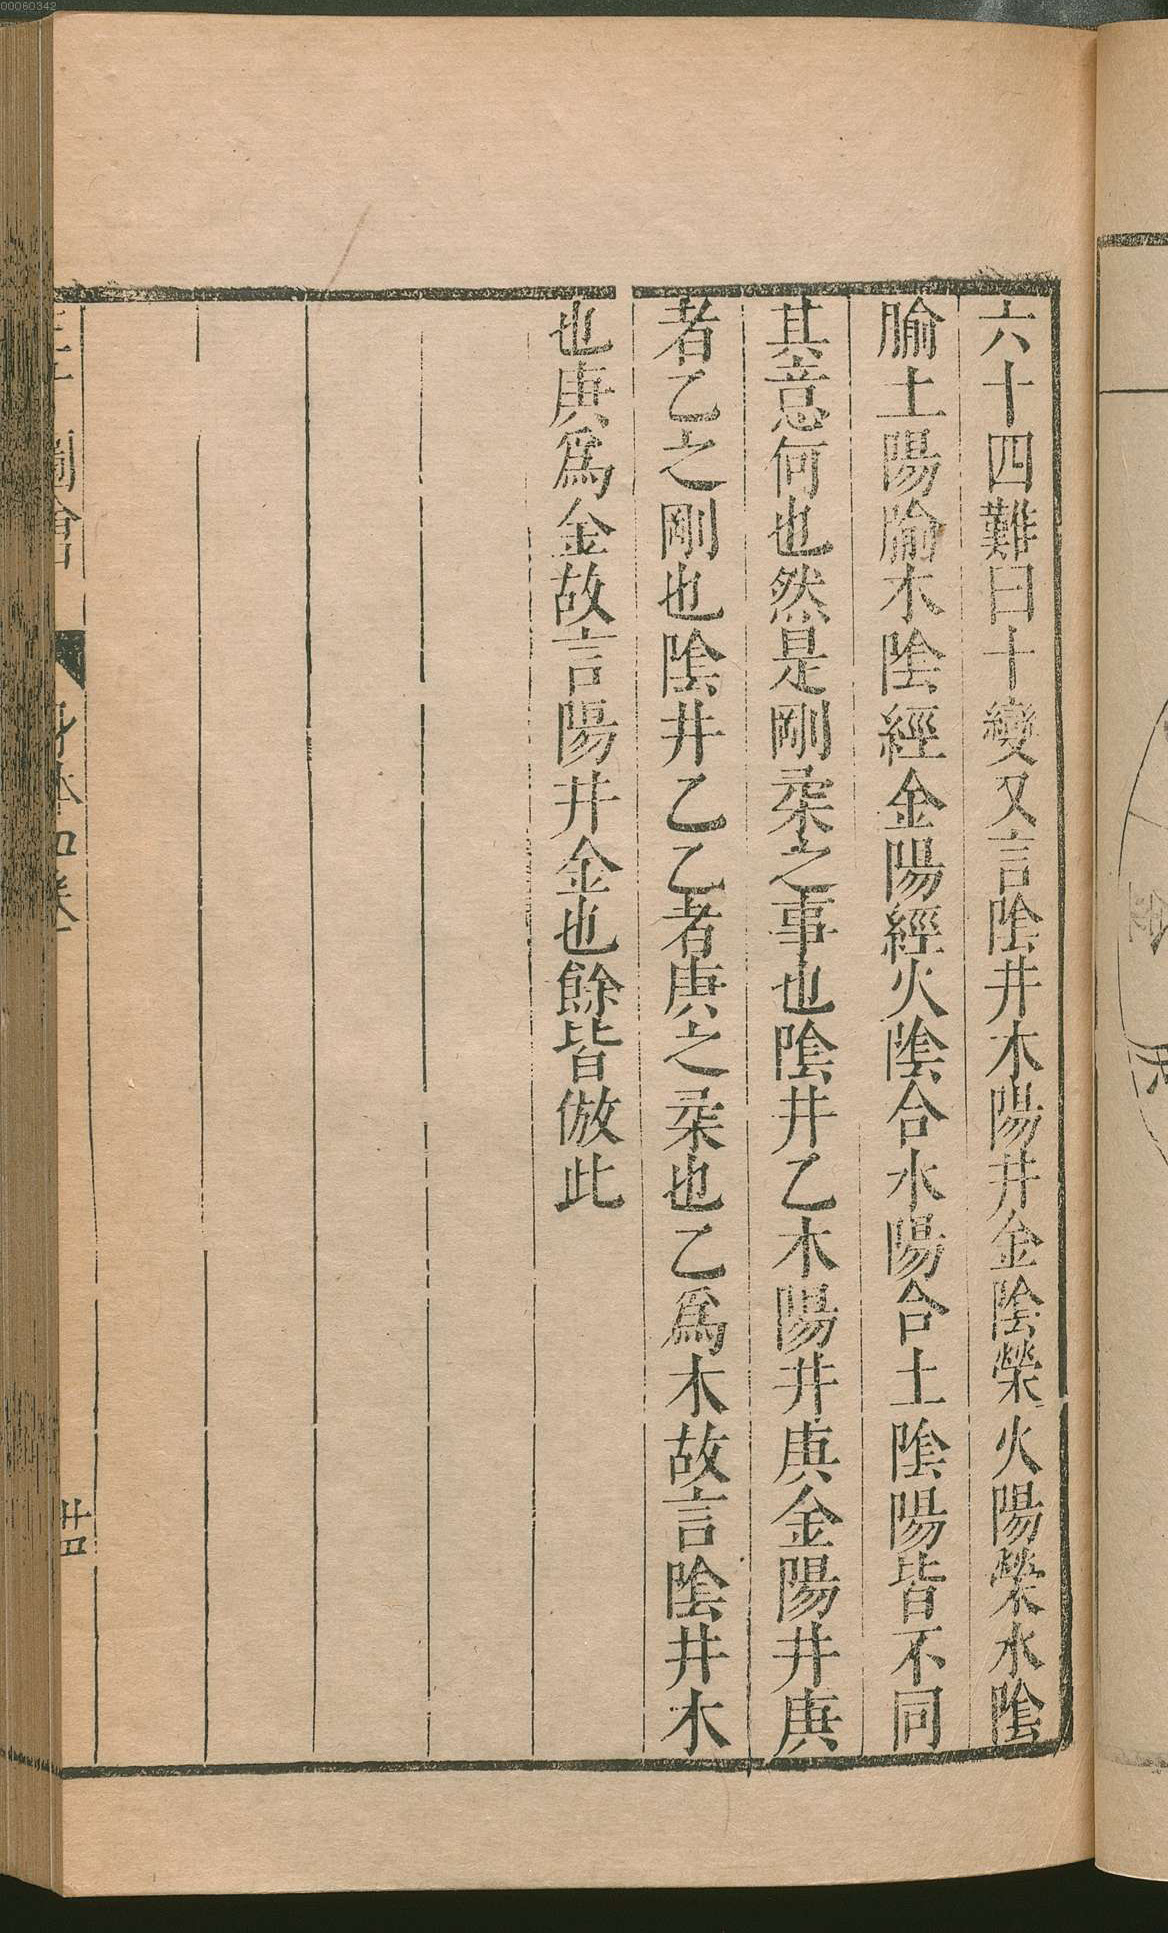 六十四難曰十變又言陰井木陽井金陰榮火陽榮水陰
腧土陽腧木陰經金陽經火陰合水陽合土陰陽皆不同
其意何也然是剛柔之事也陰井乙木陽井庚金陽井庚
者乙之剛也陰井乙乙者庚之柔也乙爲木故言陰井木
也庚爲金故言陽井金也餘皆倣此
圖會 身體四卷
廿四
00060342